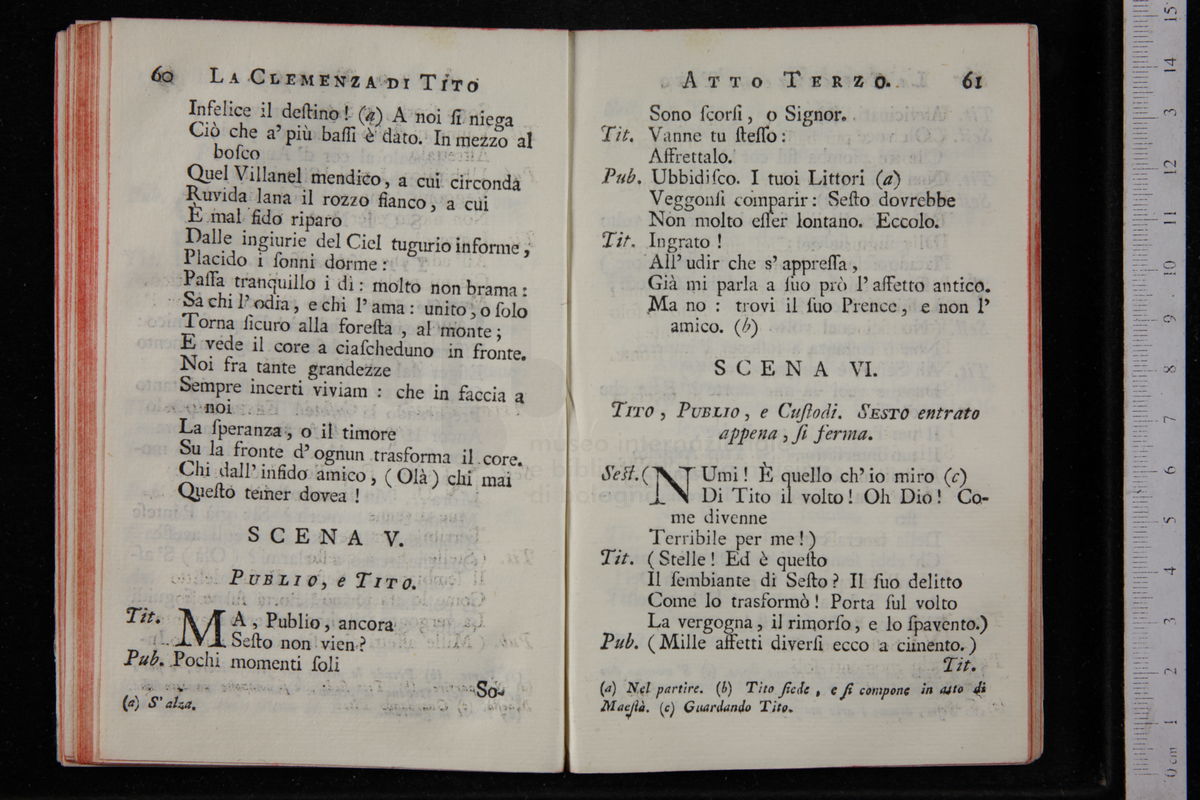 60 LA CLEMENZA DI TITO
Infelice il deſtino! (a) A noi ſi niega
Ciò che a' più baſſi è dato. In mezzo al
boſco
Quel Villanel mendico, a cui circonda
Ruvida lana il rozzo fianco, a cui
È mal fido riparo
Dalle ingiurie del Ciel tugurio informe,
Placido i ſonni dorme:
Paſſa tranquillo i dì: molto non brama:
Sa chi l'odia, e chi l'ama: unito, o ſolo
Torna ſicuro alla foreſta, al monte;
E vede il core a ciaſcheduno in fronte.
Noi fra tante grandezze
Sempre incerti viviam: che in faccia a
noi
La ſperanza, o il timore
Su la fronte d'ognun trasforma il core.
Chi dall'infido amico, (Olà) chi mai
Queſto temer dovea!
SCENA V.
PUBLIO, e TITO.
Tit. MA, Publio, ancora
Seſto non vien?
Pub. Pochi momenti ſoli
So-
(a) S'alza.
ATTO TERZO. 61
Sono ſcorſi, o Signor.
Tit. Vanne tu ſteſſo:
Affrettalo.
Pub. Ubbidiſco. I tuoi Littori (a)
Veggonſi comparir: Seſto dovrebbe
Non molto eſſer lontano. Eccolo.
Tit. Ingrato!
All'udir che s'appreſſa,
Già mi parla a ſuo prò l'affetto antico.
Ma no: trovi il ſuo Prence, e non l'
amico. (b)
SCENA VI.
TITO, PUBLIO, e Cuſtodi. SESTO entrato
appena, ſi ferma.
Seſt. (NUmi! È quello ch'io miro (c)
Di Tito il volto! Oh Dio! Co-
me divenne
Terribile per me!)
Tit. (Stelle! Ed è queſto
Il ſembiante di Seſto? Il ſuo delitto
Come lo trasformò! Porta ſul volto
La vergogna, il rimorſo, e lo ſpavento.)
Pub. (Mille affetti diverſi ecco a cimento.)
Tit.
(a) Nel partire. (b) Tito ſiede, e ſi compone in atto di
Maeſtà. (c) Guardando Tito.
museo internazionale
e biblioteca
di bologna
0 cm 1 2 3 4 5 6 7 8 9 10 11 12 13 14 15